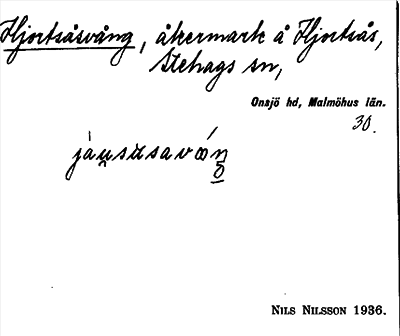 Hjortsåsvång, åkermark å Hjortsås,
Stehags sn,
Onsjö hd, Malmöhus län.
30.
NILS NILSSON 1936.